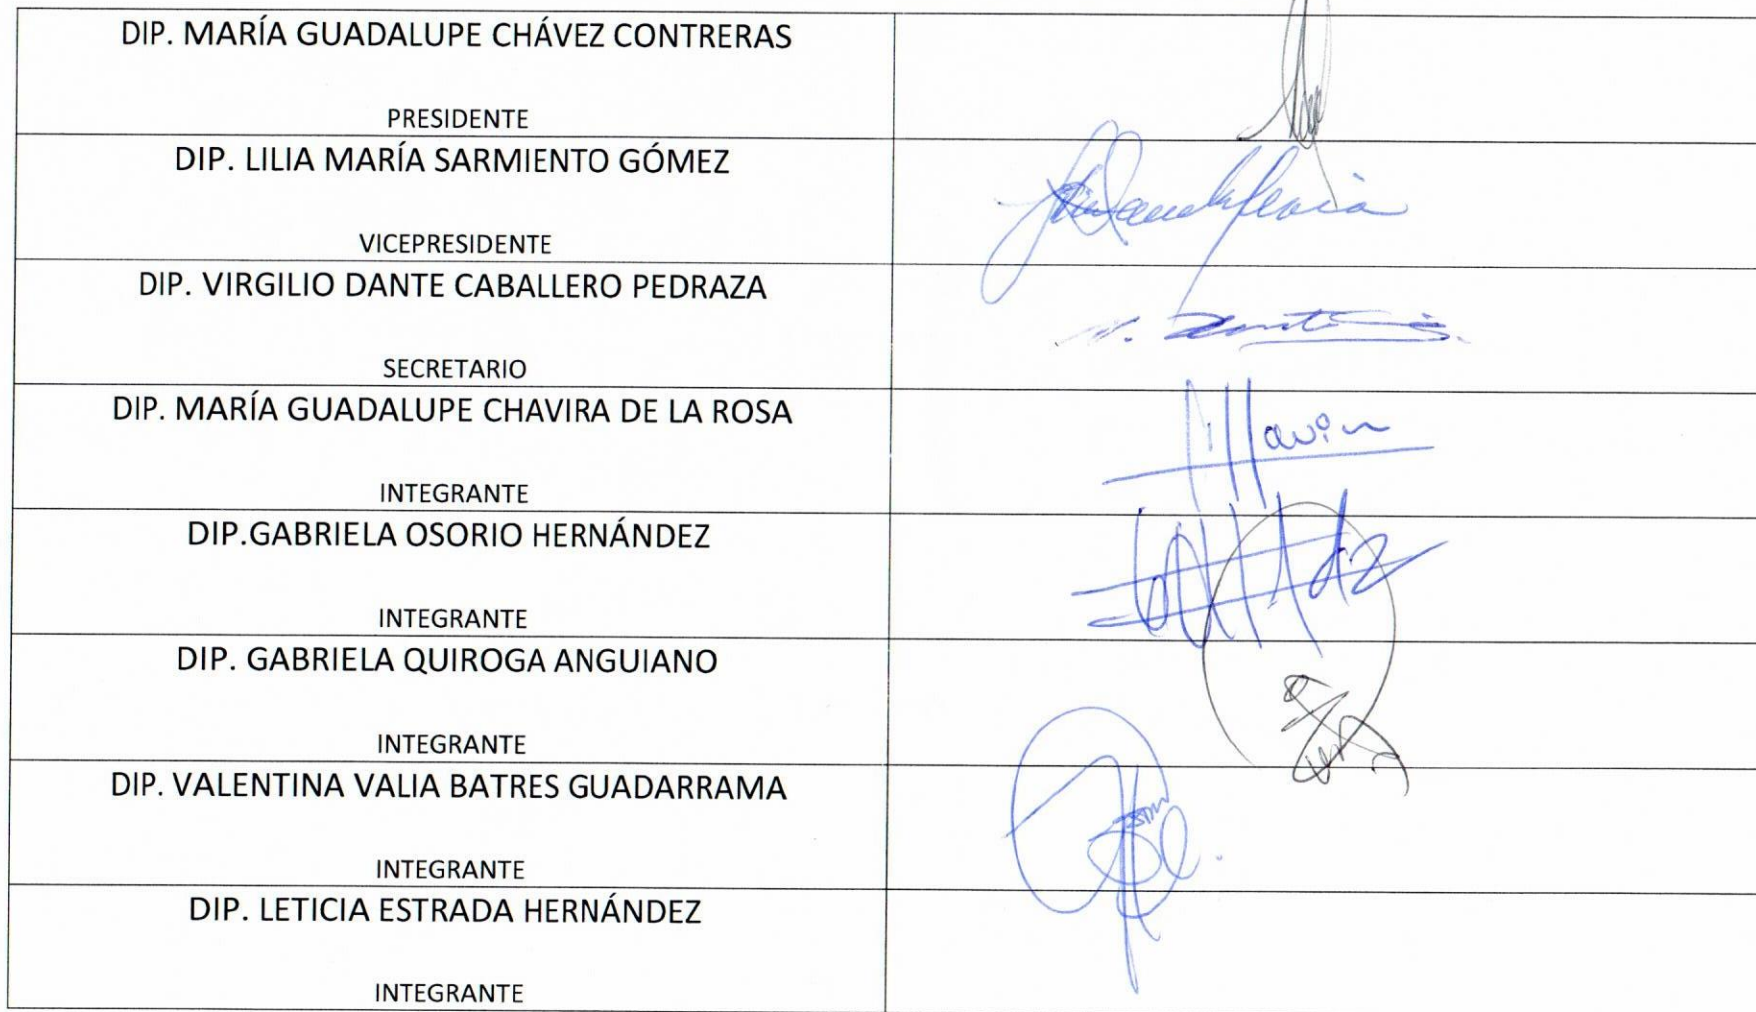 DIP. MARÍA GUADALUPE CHÁVEZ CONTRERAS
PRESIDENTE
DIP. LILIA MARÍA SARMIENTO GÓMEZ
VICEPRESIDENTE
DIP. VIRGILIO DANTE CABALLERO PEDRAZA
SECRETARIO
DIP. MARÍA GUADALUPE CHAVIRA DE LA ROSA
INTEGRANTE
DIP.GABRIELA OSORIO HERNÁNDEZ
INTEGRANTE
DIP. GABRIELA QUIROGA ANGUIANO
INTEGRANTE
DIP. VALENTINA VALIA BATRES GUADARRAMA
INTEGRANTE
DIP. LETICIA ESTRADA HERNÁNDEZ
INTEGRANTE